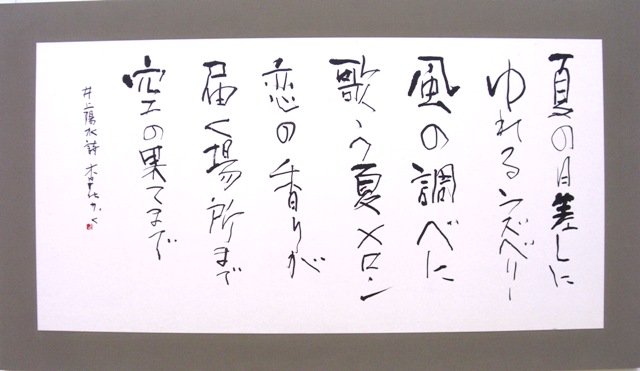 夏の日差しに
ゆれるラズベリー
風の調べに
歌う夏メロン
恋の香りが
届く場所まで
空の果てまで
井上陽水詩
かく